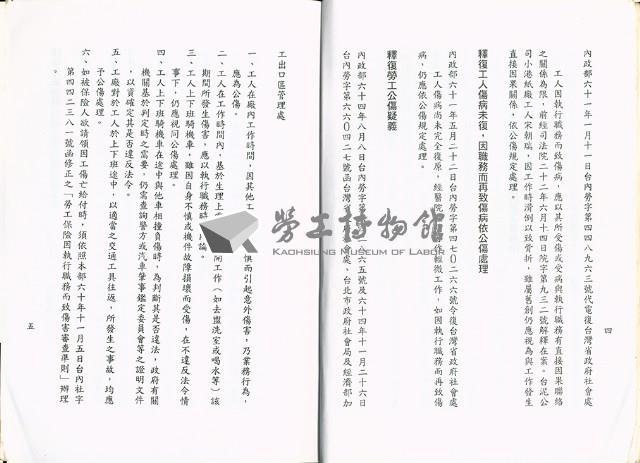 內政部六十一年一月十一日台內勞字第四四八九六三號代電復台灣省政府社會處
工人因執行職務而致傷病,應以其所受傷或受病與執行職務有直接因果聯絡
之關係為限,前經司法院二十二年六月十四日院字第九三二號解釋在案。台泥公
司小港紙廠工人宋朝瑞,因工作時滑倒以致骨折,雖屬舊創仍應視為與工作發生
直接因果關係,依公傷規定處理。
釋復工人傷病未復,因職務而再致傷病依公傷處理
內政部六十一年五月二十二日台內勞字第四七〇二六六號令復台灣省政府社會處
工人傷病尚未完全復原,經醫院
作輕微工作,如因執行職務而再致傷
病,仍應依公傷規定處理。
釋復勞工公傷疑義
內政部六十四年八月八日台內勞字第
二六五號及六十四年十一月二十六日
台內勞字第六六〇四二七號函台灣省
府
處、台北市政府社會局及經濟部加
四
工出口區管理處
一、工人在廠內工作時間,因其他工
惧而引起意外傷害,乃業務行為,
應為公傷。
二、工人在工作時間內,基於生理上
開工作(如去盥洗室或喝水等)該
期間所發生傷害,應以執行職務時
論。
三、工人上下班騎機車,雖因自身不慎或機件故障損壞而受傷,在不違反法令情
事下,仍應視同公傷處理。
四、工人上下班騎機車在途中與他車相撞負傷時,為判斷其是否違法,政府有關
機關基於判定時之需要,仍需查詢警方或汽車肇事鑑定委員會等之證明文件
,以資確定其是否違反法令。
五、工廠對於工人於上下班途中,以適當之交通工具往返,所發生之事故,均應
予公傷處理。
六、如被保險人欲請領因工傷亡給付時,須依照本部六十年十一月五日台內社字
第四四二三八一號函修正之「勞工保險因執行職務而致傷害審查準則」辦理
。
五
勞工博物館
KAOHSIUNG MUSEUM OF LABOR